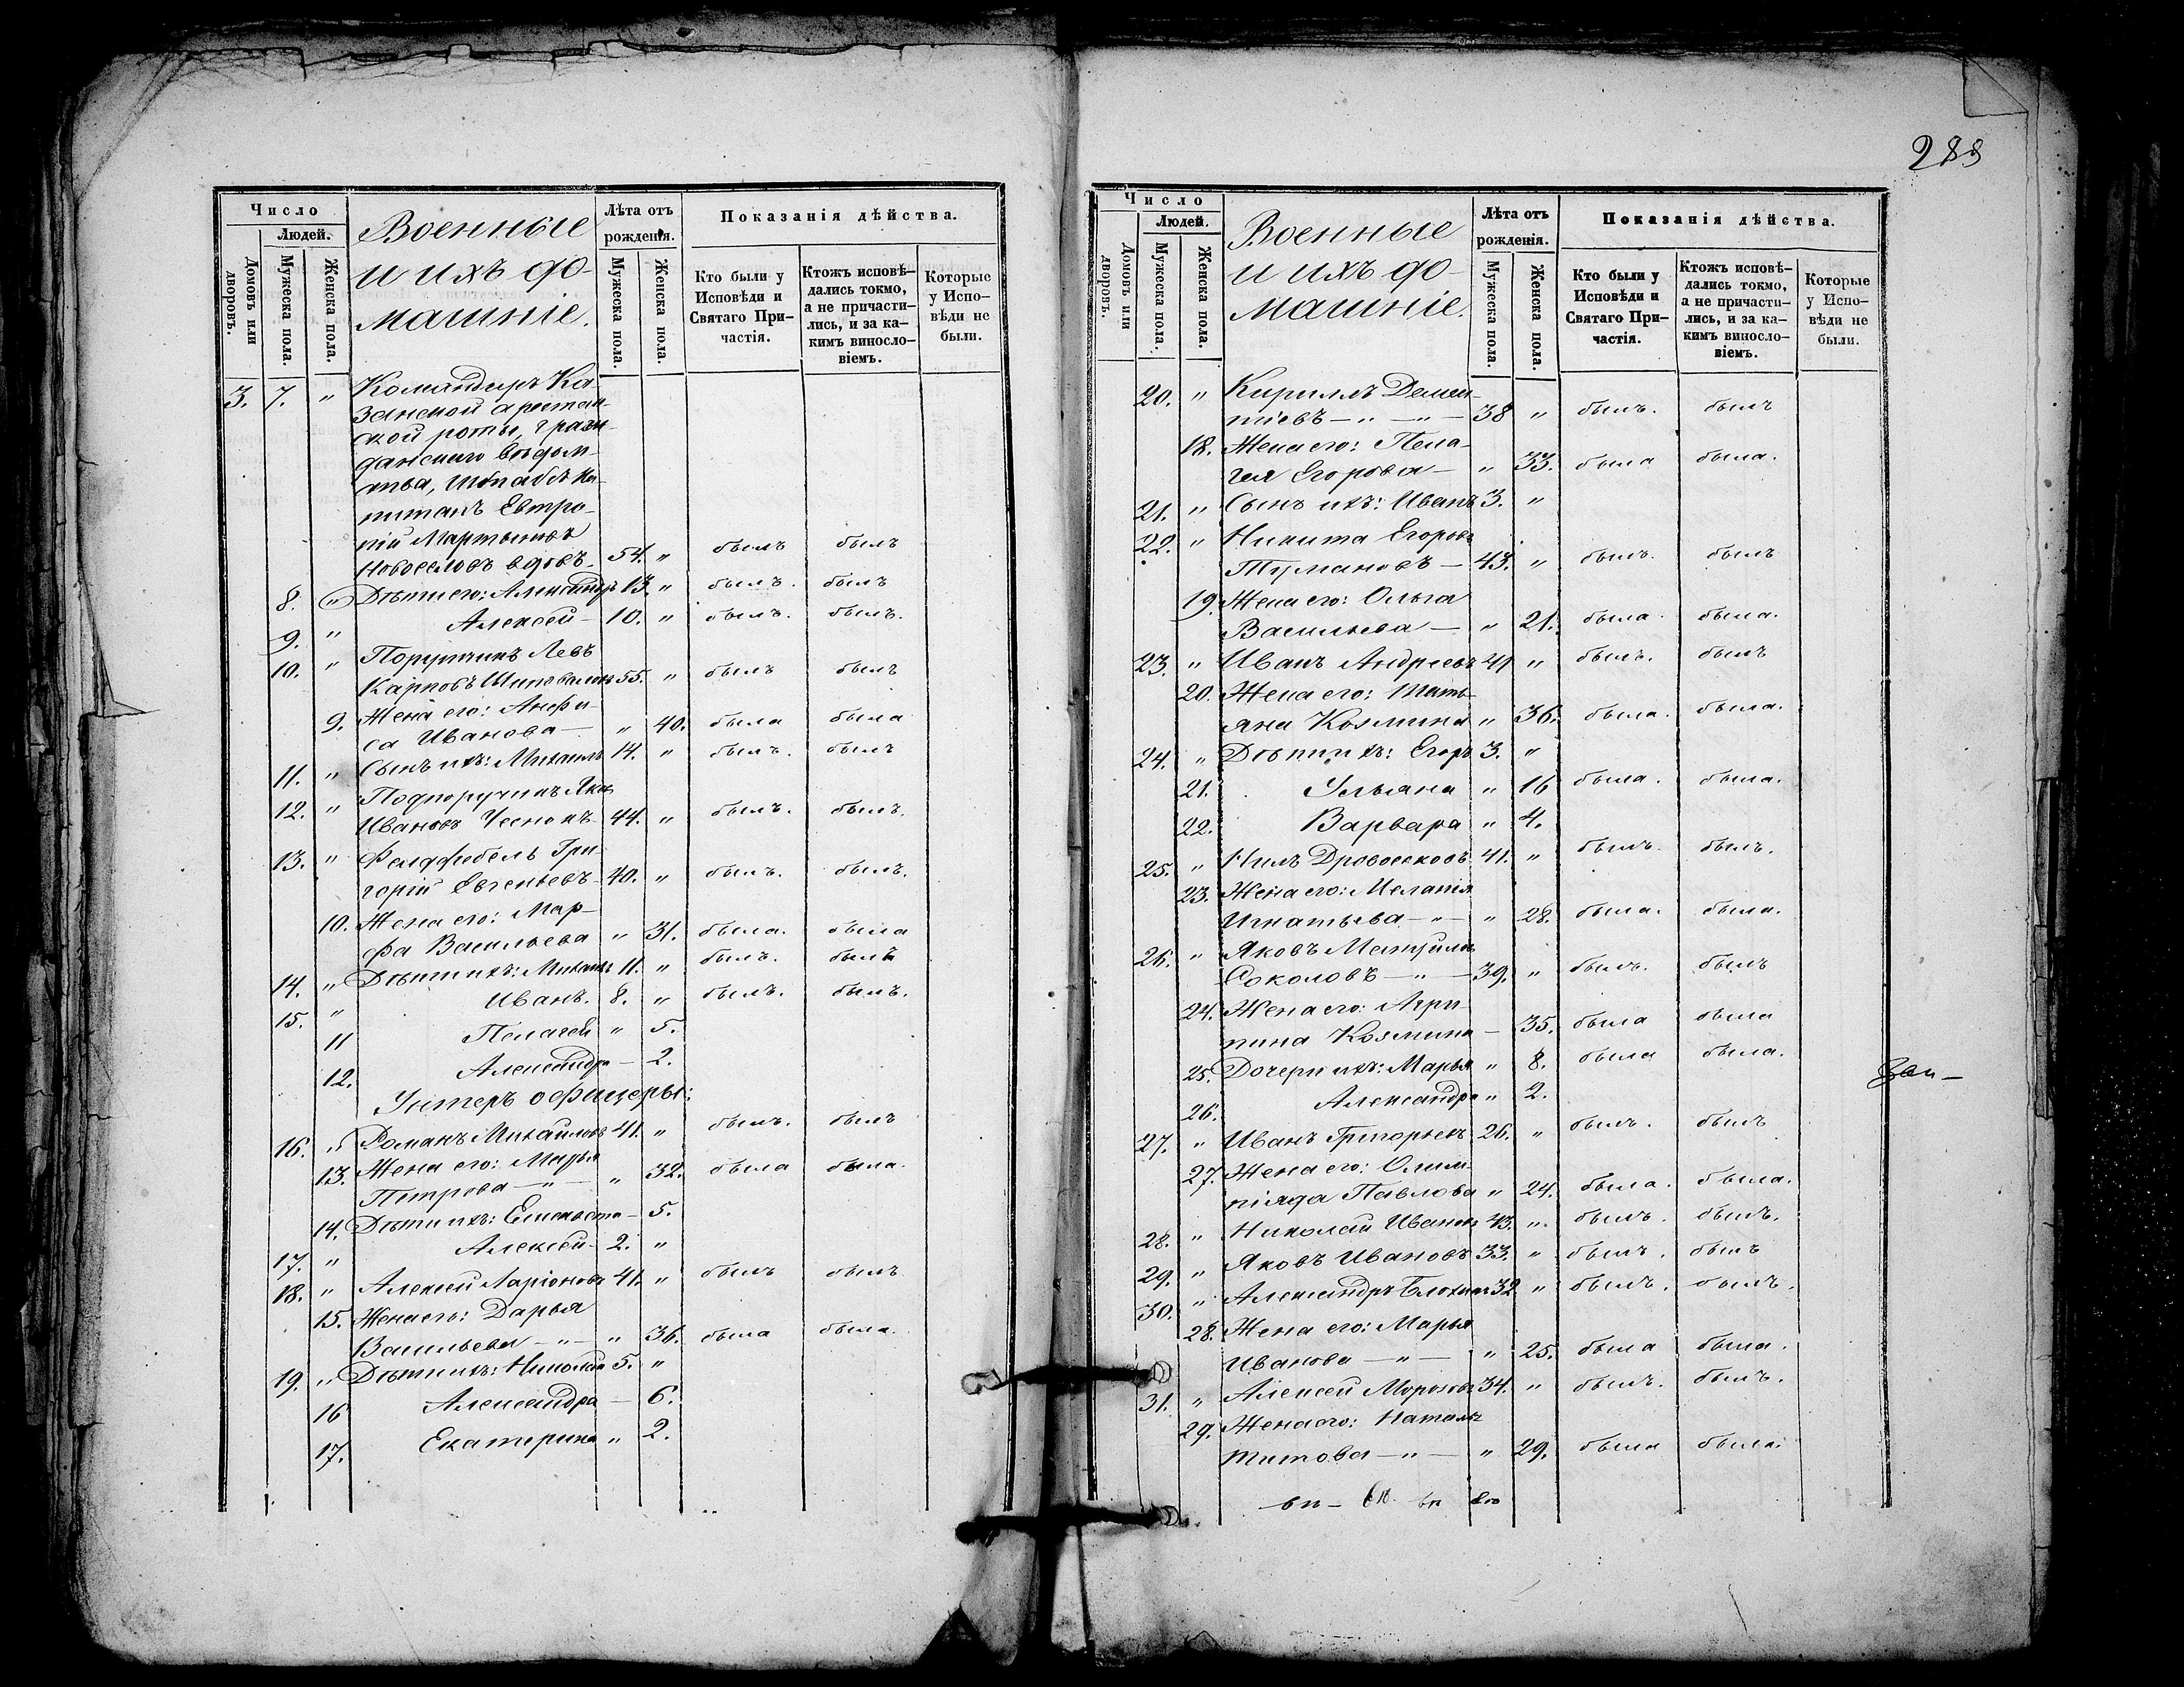 Число
Людей.
Домовъ или дворовъ.
Мужеска пола.
Женска пола.
Военные
и ихъ до-
машніе.
Лѣта отъ
рожденія.
Мужеска пола.
Женска пола.
Показанія дѣйства.
Кто были у
Исповѣди и
Святаго При-
частія.
Ктожъ исповѣ-
дались токмо,
а не причасти-
лись, и за ка-
кимъ винословіемъ.
Которые
у Испо-
вѣди не
были.
3. 7. " Командиръ Ка-
занской арестан-
ской роты, граж-
данскаго вѣдом-
ства, Штабсъ Ка-
питанъ Евтро-
пій Мартыновъ
Новоселовъ вдовъ 54. " былъ былъ
8. " Дѣти его: Александръ 13. " былъ. былъ
9. " Алексей - 10. " былъ. былъ.
10. " Поручикъ Левъ
Карповъ 55. " былъ былъ
9. Жена его: Анфи-
са Иванова — " 40. была была
11. " Сынъ ихъ: Михаилъ 14. " былъ. былъ
12. " Подпоручикъ
Ивановъ Чеснокъ 44. " былъ. былъ.
13. " Фелдфебель Гри-
горій Евгеньевъ 40. " былъ. былъ.
10. Жена его: Мар-
фа Васильева " 31. была. была
14. " Дѣти ихъ: Михаилъ 11. " былъ. былъ
15. " Иванъ. 8. " былъ. былъ.
11 Пелагея " 5.
12. Александра — 2.
Унтеръ офицеры:
16. " Романъ Михайловъ 41. " былъ. былъ
13. Жена его: Марья
Петрова — " — " 32. была была.
14. Дѣти ихъ: Елисавета — 5.
17. " Алексей - 2. "
18. " Алексей Ларіоновъ 41. " былъ былъ
15. Жена его: Дарья
Васильева — " — " 36. была была.
19. " Дѣти ихъ: Николай 5. "
16 Александра — 6.
17. Екатерина " 2.
288
Число
Людей.
Домовъ или дворовъ.
Мужеска пола.
Женска пола.
Военные
и ихъ до-
машніе.
Лѣта отъ
рожденія.
Мужеска пола.
Женска пола.
Показанія дѣйства.
Кто были у
Исповѣди и
Святаго При-
частія.
Ктожъ исповѣ-
дались токмо,
а не причасти-
лись, и за ка-
кимъ винословіемъ.
Которые
у Испо-
вѣди не
были.
20. " Кириллъ Демен-
тіевъ — " — " — 38 " былъ. былъ
18. Жена его: Пела-
гея Егорова — " 33. была была.
21. " Сынъ ихъ: Иванъ 3. "
22. " Никита Егоровъ
Тумановъ — 43. " былъ. былъ
19. Жена его: Ольга
Васильева — " 21. была. была.
23. " Иванъ Андреевъ 41 " былъ. былъ
20. Жена его: Тать-
яна Козмина " 36. была. была.
24. " Дѣти ихъ: Егоръ 3. "
21. Ульяна " 16 была. была.
22. Варвара " 4.
25. " Нилъ Дровосековъ 41. " былъ. былъ.
23. Жена его: Меланія
Игнатьева — " — " 28. была. была.
26. " Яковъ
Соколовъ — " — 39. " былъ. былъ
24. Жена его: Агри-
пина Козмина — 35. была была
25. Дочери ихъ: Марья " 8. была была.
26. Александра " 2.
27. " Иванъ Григорьевъ 26. " былъ. былъ
27. Жена его: Олим-
піяда Павлова " 24. была. была.
28. " Николай Ивановъ 43. " былъ. былъ.
29. " Яковъ Ивановъ 33. " былъ. былъ
30. " Александръ Блохинъ 32 " былъ. былъ.
28. Жена его: Марья
Иванова — " — " 25. была была.
31. " Алексей Морозовъ 34. " былъ. былъ.
29. Жена его: Наталья
Титова — " — " 29. была была.